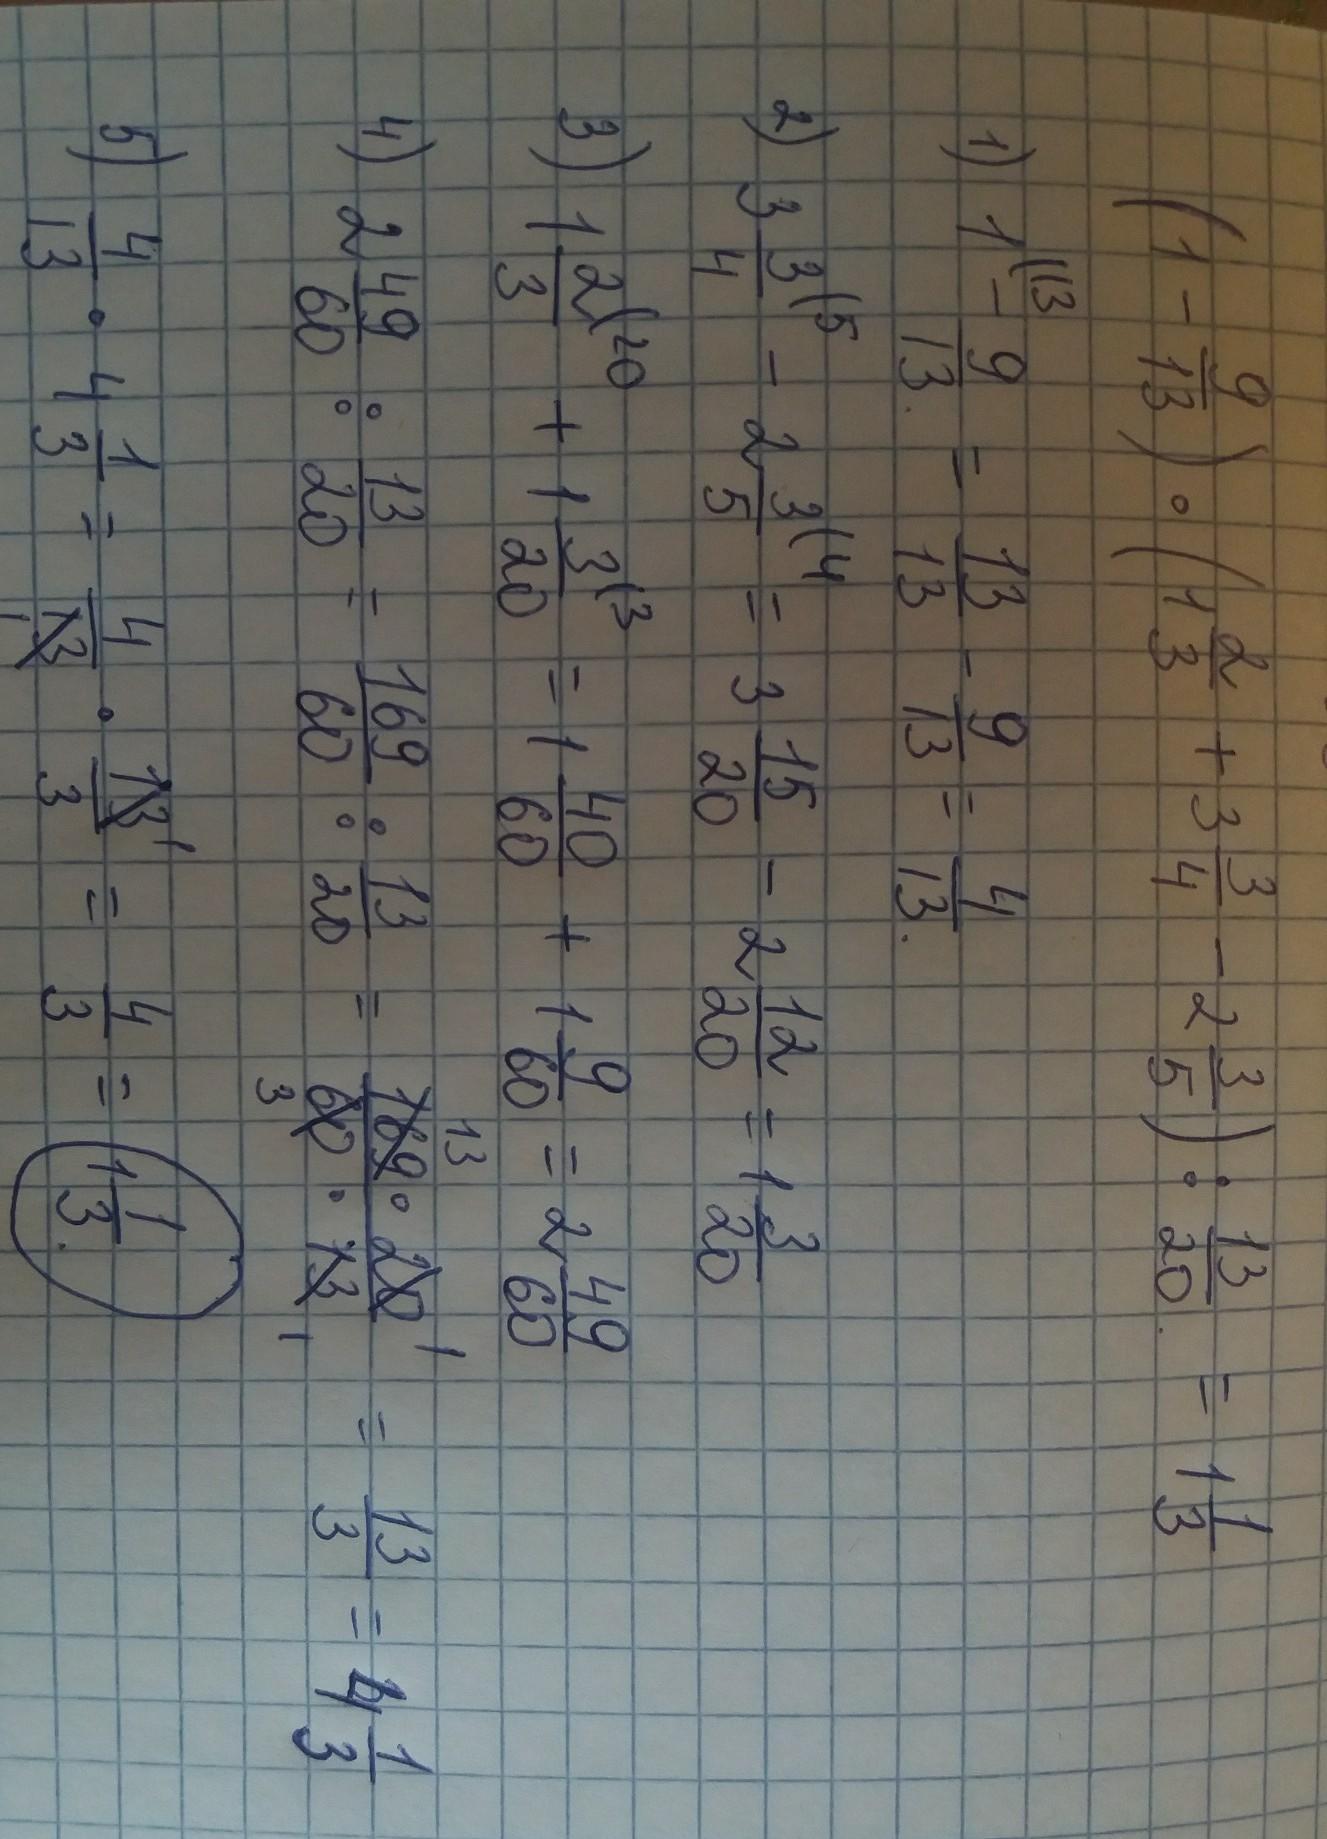 (1 - 9/13) · (1 2/3 + 3 3/4 - 2 3/5) : 13/20. = 1 1/3
1) 1(13 - 9/13. = 13/13 - 9/13 = 4/13.
2) 3 3/4(5 - 2 3/5(4 = 3 15/20 - 2 12/20 = 1 3/20
3) 1 2/3(20 + 1 3/20(3 = 1 40/60 + 1 9/60 = 2 49/60
4) 2 49/60 : 13/20 = 169/60 : 13/20 = 169 13 · 20 1/60 3 · 13 1 = 13/3 = 4 1/3
5) 4/13 · 4 1/3 = 4/13 1 · 13 1/3 = 4/3 = 1 1/3.